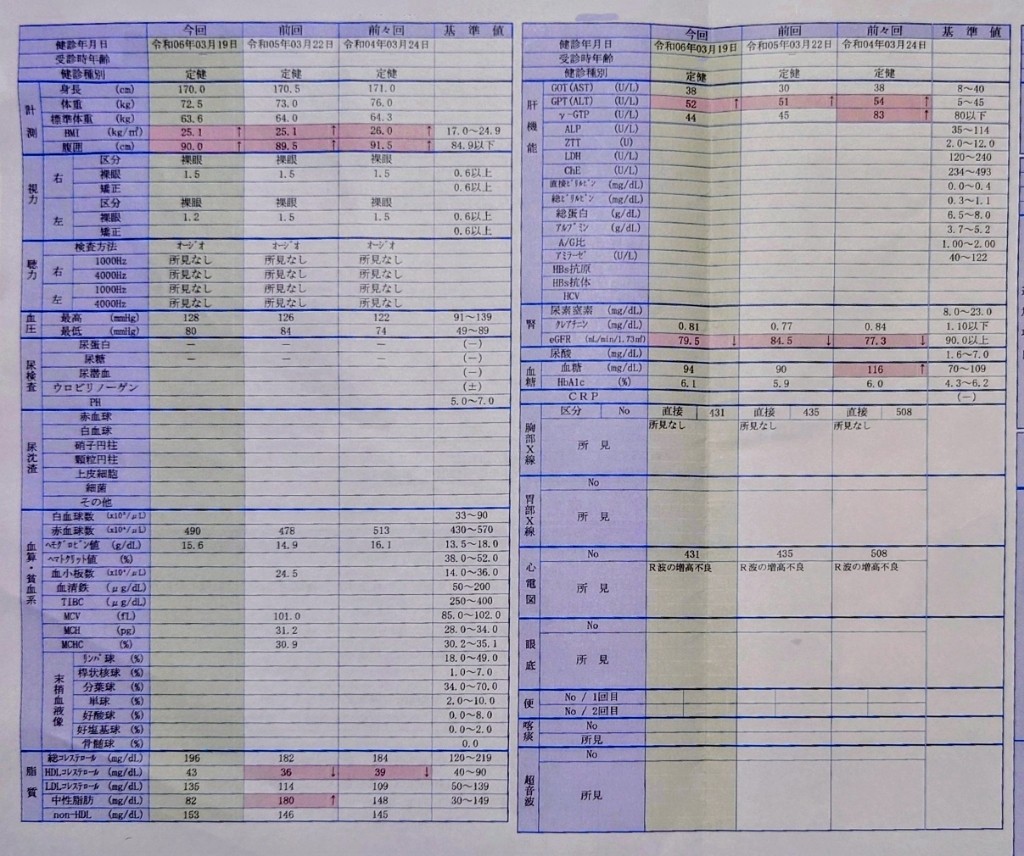 今回 前回 前々回 基準値
健診年月日 令和06年03月19日 令和05年03月22日 令和04年03月24日
受診時年齢
健診種別 定健 定健 定健
計測
身長 (cm) 170.0 170.5 171.0
体重 (kg) 72.5 73.0 76.0
標準体重 (kg) 63.6 64.0 64.3
BMI (kg/㎡) 25.1 ↑ 25.1 ↑ 26.0 ↑ 17.0～24.9
腹囲 (cm) 90.0 ↑ 89.5 ↑ 91.5 ↑ 84.9以下
視力
右 区分 裸眼 裸眼 裸眼
裸眼 1.5 1.5 1.5 0.6以上
矯正 0.6以上
左 区分 裸眼 裸眼 裸眼
裸眼 1.2 1.5 1.5 0.6以上
矯正 0.6以上
聴力
検査方法 オージオ オージオ オージオ
右 1000Hz 所見なし 所見なし 所見なし
4000Hz 所見なし 所見なし 所見なし
左 1000Hz 所見なし 所見なし 所見なし
4000Hz 所見なし 所見なし 所見なし
血圧
最高 (mmHg) 128 126 122 91～139
最低 (mmHg) 80 84 74 49～89
尿検査
尿蛋白 － － － (－)
尿糖 － － － (－)
尿潜血 (－)
ウロビリノーゲン (±)
PH 5.0～7.0
尿沈渣
赤血球
白血球
硝子円柱
顆粒円柱
上皮細胞
細菌
その他
血算・貧血系
白血球数 33～90
赤血球数 490 478 513 430～570
ヘモグロビン値 (g/dL) 15.6 14.9 16.1 13.5～18.0
ヘマトクリット値 (%) 38.0～52.0
血小板数 24.5 14.0～36.0
血清鉄 (μg/dL) 50～200
TIBC (μg/dL) 250～400
MCV (fL) 101.0 85.0～102.0
MCH (pg) 31.2 28.0～34.0
MCHC (%) 30.9 30.2～35.1
末梢血液像
リンパ球 (%) 18.0～49.0
桿状核球 (%) 1.0～7.0
分葉球 (%) 34.0～70.0
単球 (%) 2.0～10.0
好酸球 (%) 0.0～8.0
好塩基球 (%) 0.0～2.0
骨髄球 (%) 0.0
脂質
総コレステロール (mg/dL) 196 182 184 120～219
HDLコレステロール (mg/dL) 43 36 ↓ 39 ↓ 40～90
LDLコレステロール (mg/dL) 135 114 109 50～139
中性脂肪 (mg/dL) 82 180 ↑ 148 30～149
non-HDL (mg/dL) 153 146 145
今回 前回 前々回 基準値
健診年月日 令和06年03月19日 令和05年03月22日 令和04年03月24日
受診時年齢
健診種別 定健 定健 定健
肝機能
GOT(AST) (U/L) 38 30 38 8～40
GPT(ALT) (U/L) 52 ↑ 51 ↑ 54 ↑ 5～45
γ-GTP (U/L) 44 45 83 ↑ 80以下
ALP (U/L) 35～114
ZTT (U) 2.0～12.0
LDH (U/L) 120～240
ChE (U/L) 234～493
直接ビリルビン (mg/dL) 0.0～0.4
総ビリルビン (mg/dL) 0.3～1.1
総蛋白 (g/dL) 6.5～8.0
アルブミン (g/dL) 3.7～5.2
A/G比 1.00～2.00
アミラーゼ (U/L) 40～122
HBs抗原
HBs抗体
HCV
腎
尿素窒素 (mg/dL) 8.0～23.0
クレアチニン (mg/dL) 0.81 0.77 0.84 1.10以下
eGFR (mL/min/1.73㎡) 79.5 ↓ 84.5 ↓ 77.3 ↓ 90.0以上
尿酸 (mg/dL) 1.6～7.0
血糖
血糖 (mg/dL) 94 90 116 ↑ 70～109
HbA1c (%) 6.1 5.9 6.0 4.3～6.2
CRP (－)
胸部X線
区分 No 直接 431 直接 435 直接 508
所見 所見なし 所見なし 所見なし
胃部X線
No
所見
心電図
No 431 435 508
所見 R波の増高不良 R波の増高不良 R波の増高不良
眼底
No
所見
便
No / 1回目
No / 2回目
喀痰
No
所見
超音波
No
所見